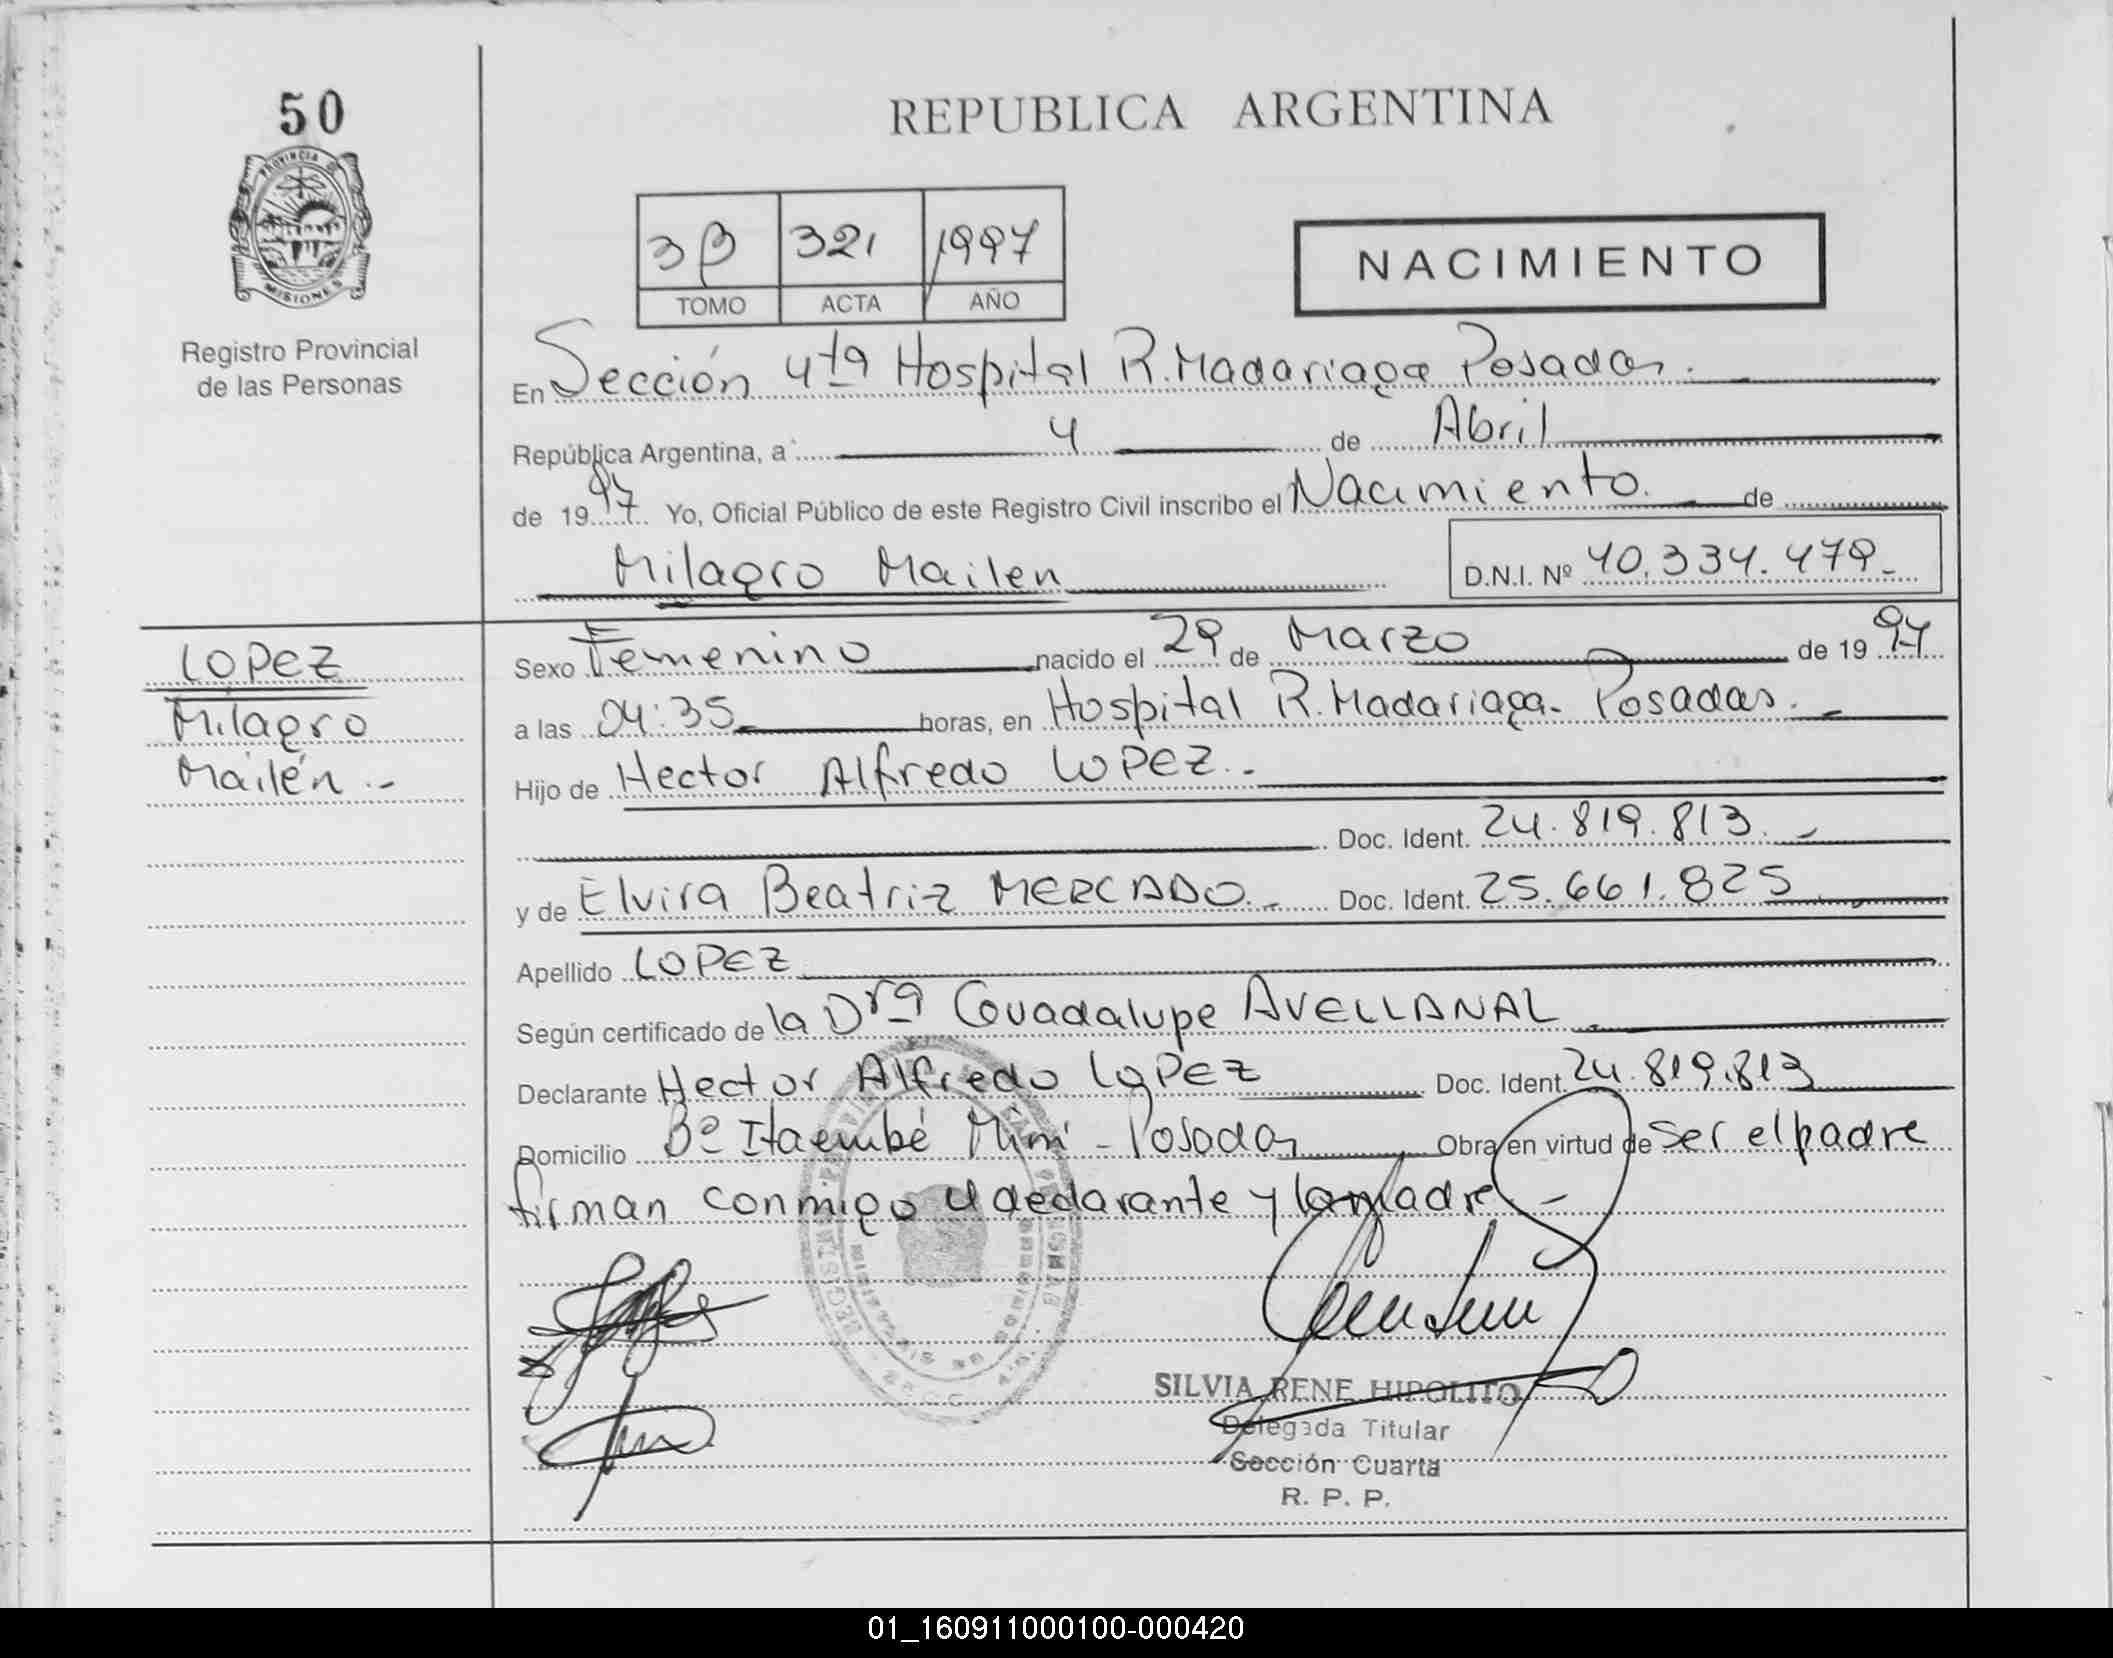 50
PROVINCIA DE
MISIONES
Registro Provincial
de las Personas
REPUBLICA ARGENTINA
3β 321 1997
TOMO ACTA AÑO
NACIMIENTO
En Sección 4ta Hospital R. Madariaga Posadas.
República Argentina, a 4 de Abril
de 1997 Yo, Oficial Público de este Registro Civil inscribo el Nacimiento. de
Milagro Mailen
D.N.I. Nº 40.334.479
LOPEZ
Milagro
Mailén.-
Sexo Femenino nacido el 29 de Marzo de 1997
a las 04:35 horas, en Hospital R. Madariaga - Posadas.-
Hijo de Hector Alfredo LOPEZ.-
Doc. Ident. 24.819.813.-
y de Elvira Beatriz MERCADO.- Doc. Ident. 25.661.825
Apellido LOPEZ
Según certificado de la Drª Guadalupe AVELLANAL
Declarante Hector Alfredo LOPEZ Doc. Ident. 24.819.813
Domicilio Bº Itaembé Miní - Posadas Obra en virtud de Ser el padre
firman conmigo el declarante y la madre.-
SILVIA RENE HIPOLITO
Delegada Titular
Sección Cuarta
R. P. P.
01_160911000100-000420